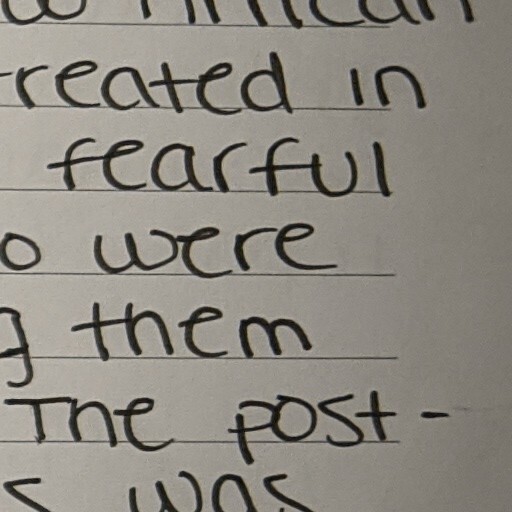 African
treated in
fearful
were
them
The post-
was